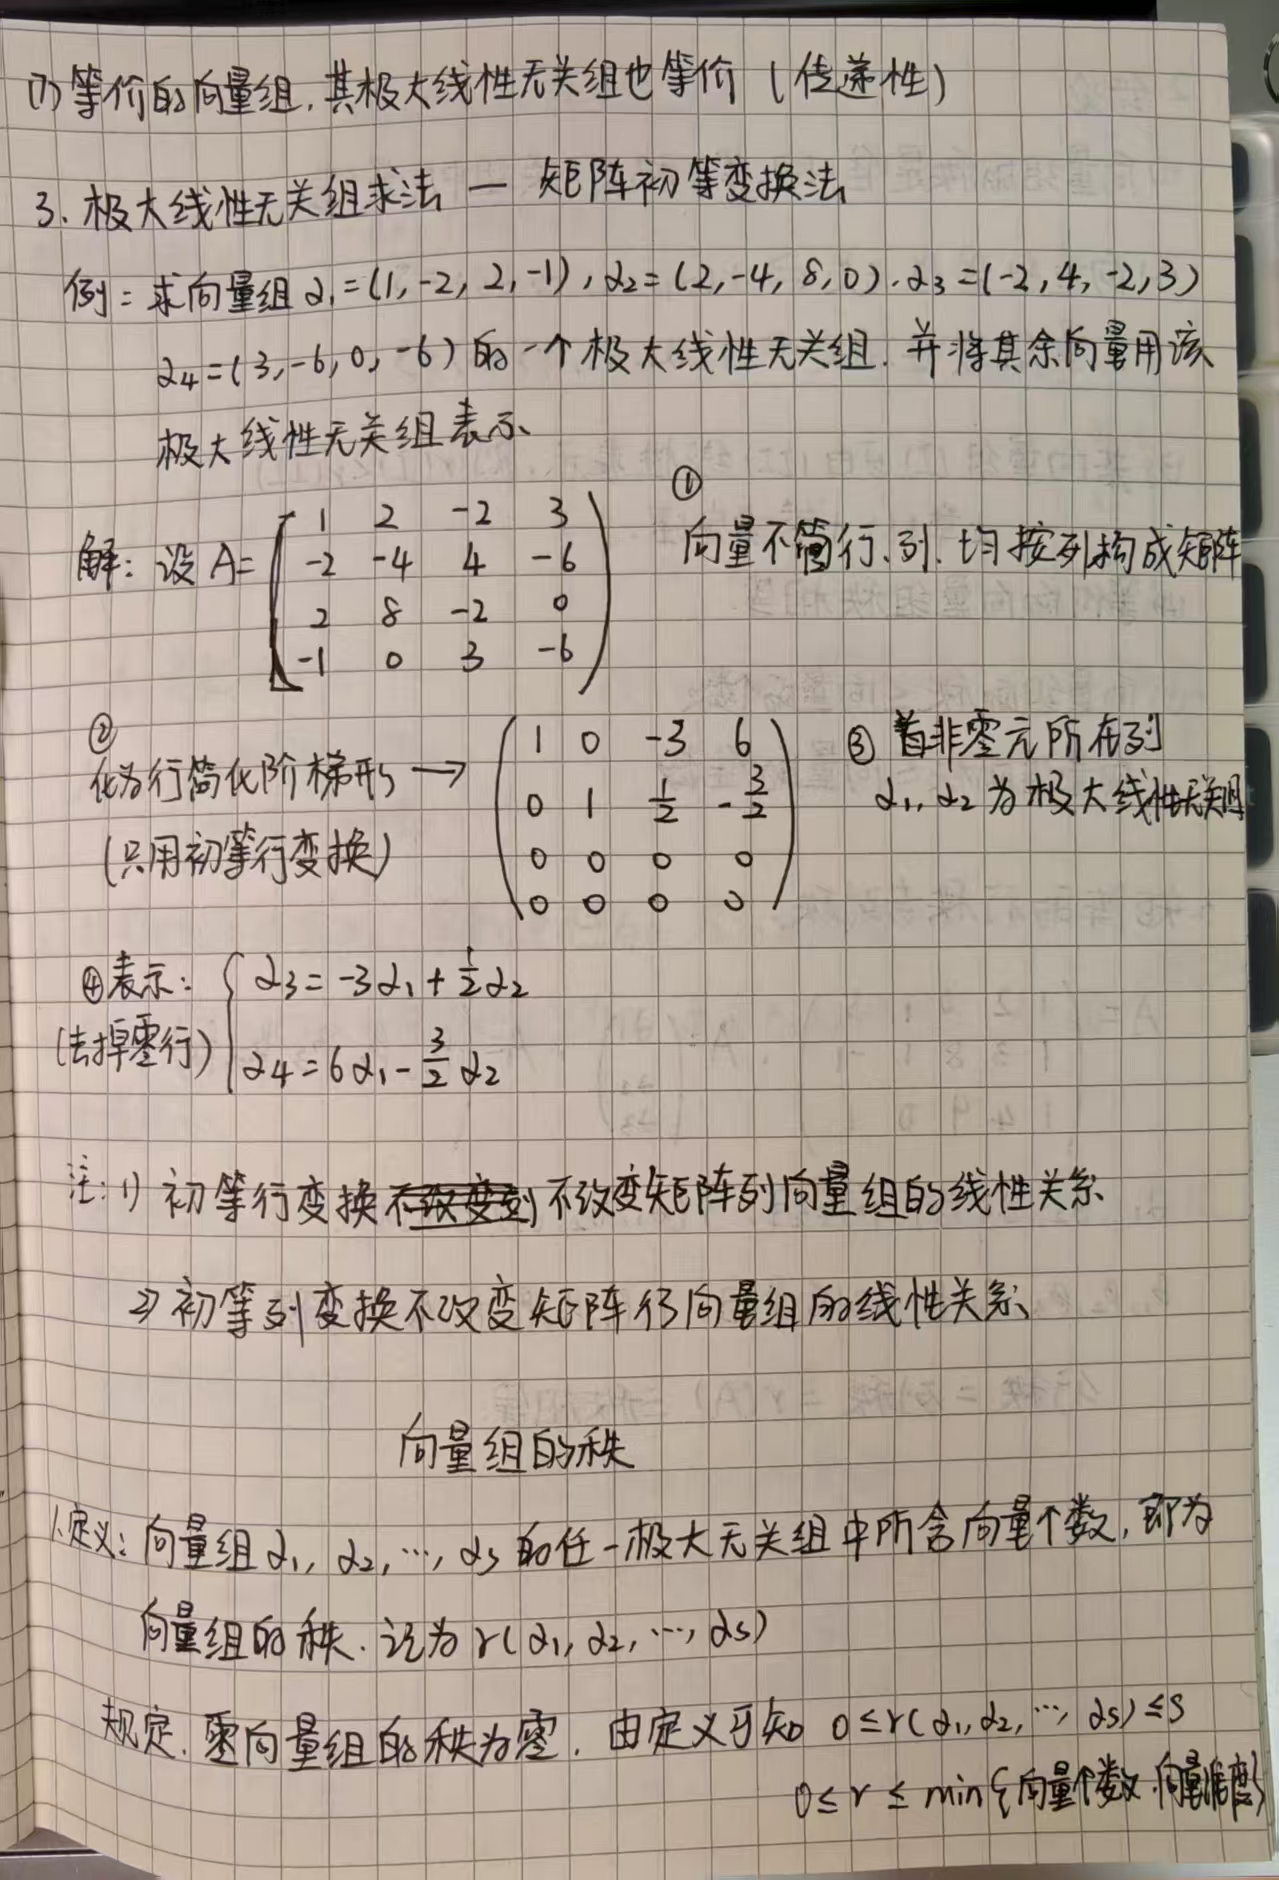 (7) 等价的向量组,其极大线性无关组也等价 (传递性)
3. 极大线性无关组求法 — 矩阵初等变换法
例: 求向量组 α₁=(1,-2,2,-1), α₂=(2,-4,8,0). α₃=(-2,4,-2,3)
α₄=(3,-6,0,-6) 的一个极大线性无关组. 并将其余向量用该
极大线性无关组表示
①
解: 设 A=
1 2 -2 3
-2 -4 4 -6
2 8 -2 0
-1 0 3 -6
向量不管行、列. 均按列构成矩阵
②
化为行简化阶梯形 →
(只用初等行变换)
1 0 -3 6
0 1 1/2 -3/2
0 0 0 0
0 0 0 0
③ 首非零元所在列
α₁, α₂ 为极大线性无关组
④表示: { α₃=-3α₁+1/2α₂
(去掉零行) α₄=6α₁-3/2α₂
注: 1) 初等行变换 不改变矩阵列向量组的线性关系
2) 初等列变换不改变矩阵行向量组的线性关系
向量组的秩
1.定义: 向量组 α₁, α₂, ⋯, αs 的任一极大无关组中所含向量个数, 即为
向量组的秩. 记为 r(α₁, α₂, ⋯, αs)
规定. 零向量组的秩为零. 由定义可知 0≤r(α₁,α₂,⋯,αs)≤s
0≤r≤min{向量个数.向量维度}